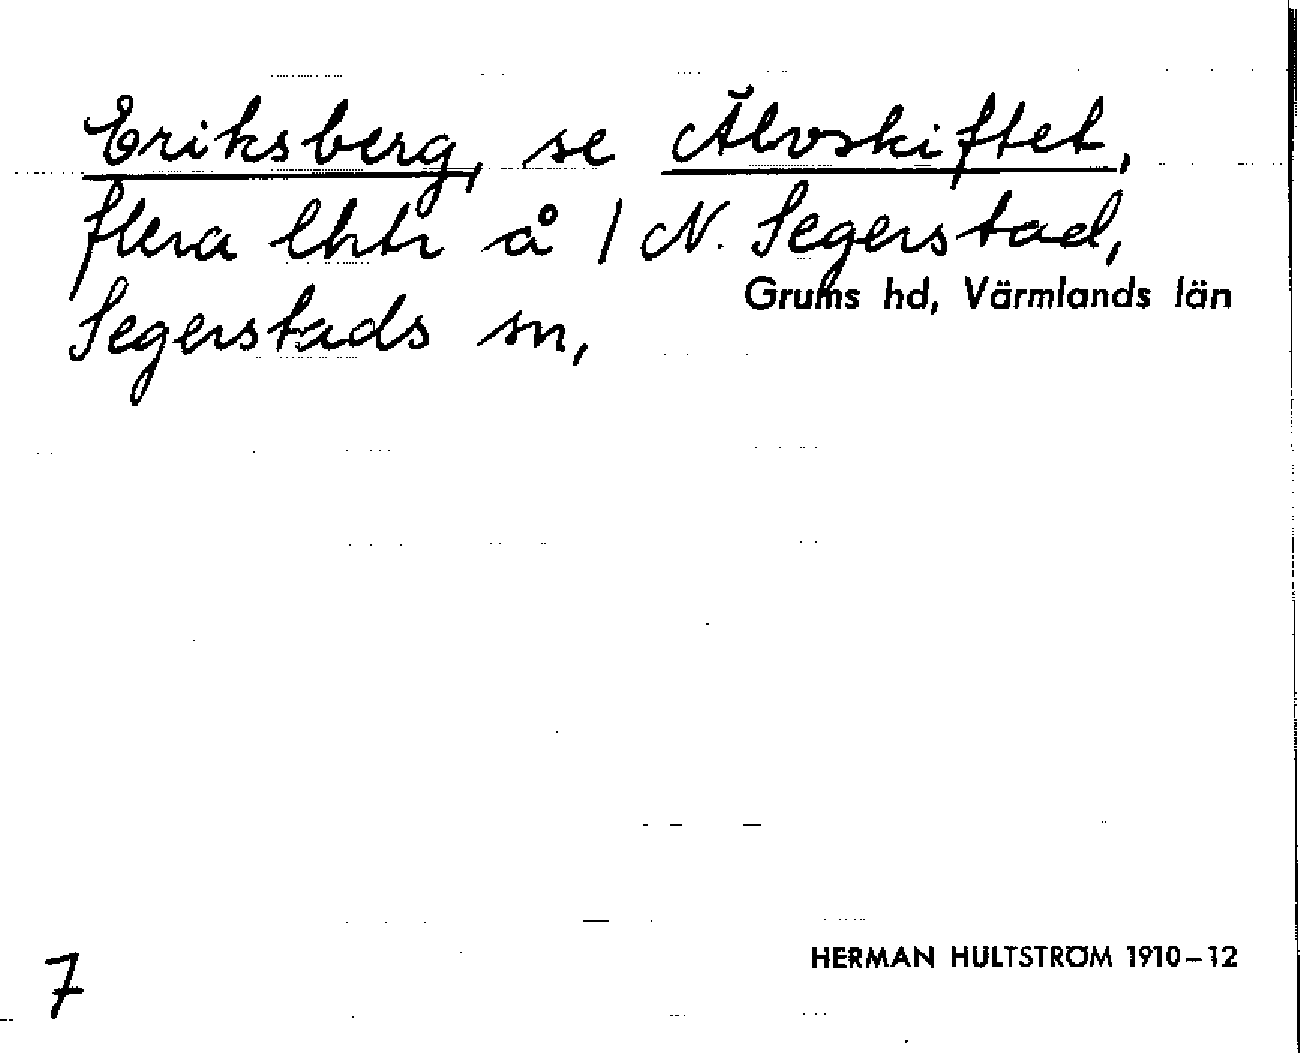 Eriksberg, se Älvskiftet,
flera lhtr å 1 N. Segerstad,
Grums hd, Värmlands län
Segerstads sn,
7
HERMAN HULTSTRÖM 1910–12